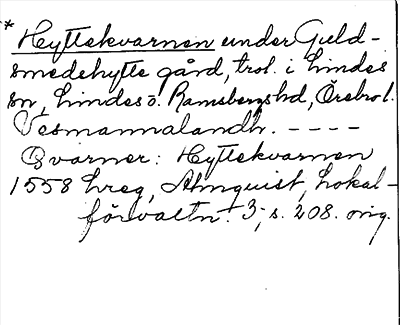 * Hyttekvarnen under Guld-
smedehytte gård, trol. i Lindes
sn, Lindes o. Ramsbergs hd, Örebro l.
Vesmannalandh. - - - -
Qvarner: Hyttekvarnen
1558 Lreg, Almquist, Lokal-
förvaltn. 3, s. 208. orig.